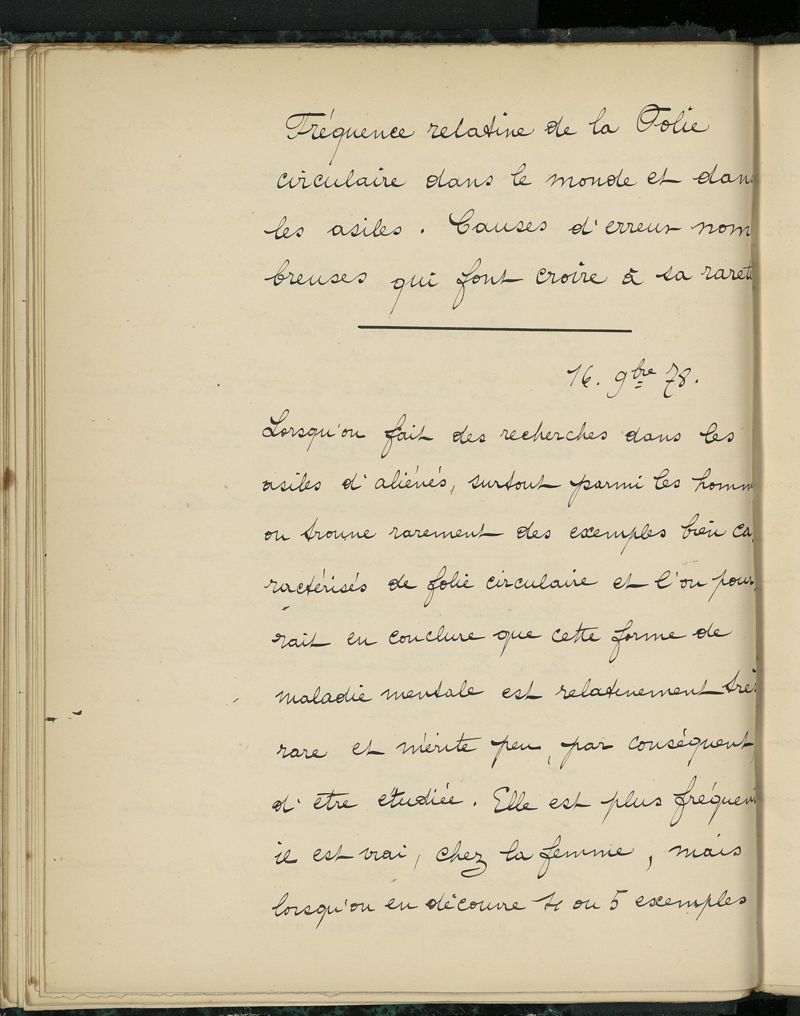 Fréquence relative de la Folie
circulaire dans le monde et dans
les asiles. Causes d'erreur nom
breuses qui font croire à sa rareté
16. 9bre 78.
Lorsqu'on fait des recherches dans les
asiles d'aliénés, surtout parmi les homm
on trouve rarement des exemples bien ca
ractérisés de folie circulaire et l'on pour
rait en conclure que cette forme de
maladie mentale est relativement très
rare et mérite peu, par conséquent,
d'être étudiée. Elle est plus fréquen
il est vrai, chez la femme, mais
lorsqu'on en découvre 4 ou 5 exemples